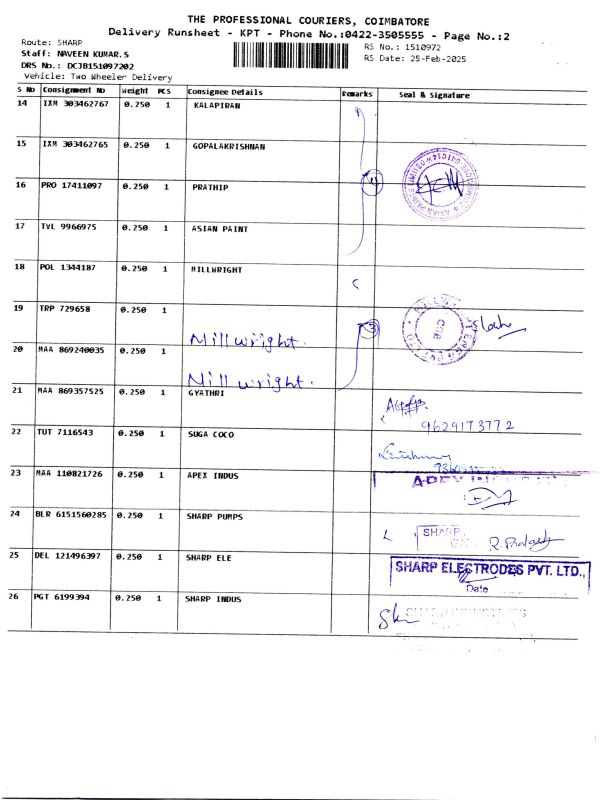 THE PROFESSIONAL COURIERS, COIMBATORE
Delivery Runsheet - KPT - Phone No.:0422-3505555 - Page No.:2
Route: SHARP
RS No.: 1510972
Staff: NAVEEN KUMAR.S
RS Date: 25-Feb-2025
DRS No.: DCJB151097202
Vehicle: Two Wheeler Delivery
S No Consignment No Weight PCS Consignee Details Remarks Seal & Signature
14 IXM 303462767 0.250 1 KALAPIRAN
15 IXM 303462765 0.250 1 GOPALAKRISHNAN
16 PRO 17411097 0.250 1 PRATHIP 4
17 TVL 9966975 0.250 1 ASIAN PAINT
18 POL 1344187 0.250 1 MILLWRIGHT
19 TRP 729658 0.250 1 Millwright. 3
20 MAA 869240035 0.250 1 Millwright.
21 MAA 869357525 0.250 1 GYATHRI
9629173772
22 TUT 7116543 0.250 1 SUGA COCO
23 MAA 110821726 0.250 1 APEX INDUS
24 BLR 6151560285 0.250 1 SHARP PUMPS
SHARP
25 DEL 121496397 0.250 1 SHARP ELE
SHARP ELECTRODES PVT. LTD.,
Date
26 PGT 6199394 0.250 1 SHARP INDUS
SHARP INDUSTRIES